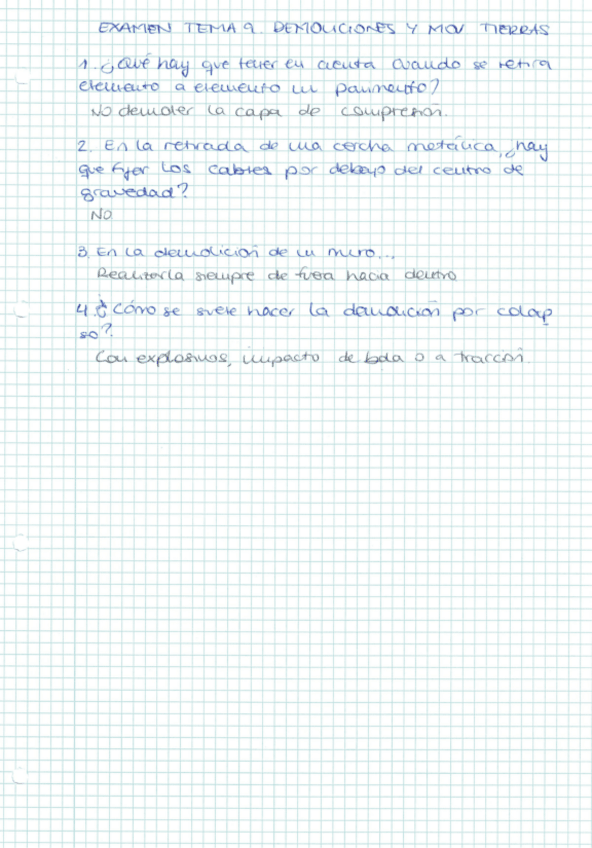 EXAMEN TEMA 9. DEMOLICIONES Y MOV TIERRAS
1. ¿Qué hay que tener en cuenta cuando se retira
elemento a elemento un pavimento?
No demoler la capa de compresión.
2. En la retirada de una cercha metálica, ¿hay
que fijar los cables por debajo del centro de
gravedad?
No
3. En la demolición de un muro...
Realizarla siempre de fuera hacia dentro
4. ¿Cómo se suele hacer la demolición por colap
so?
Con explosivos, impacto de bola o a tracción.